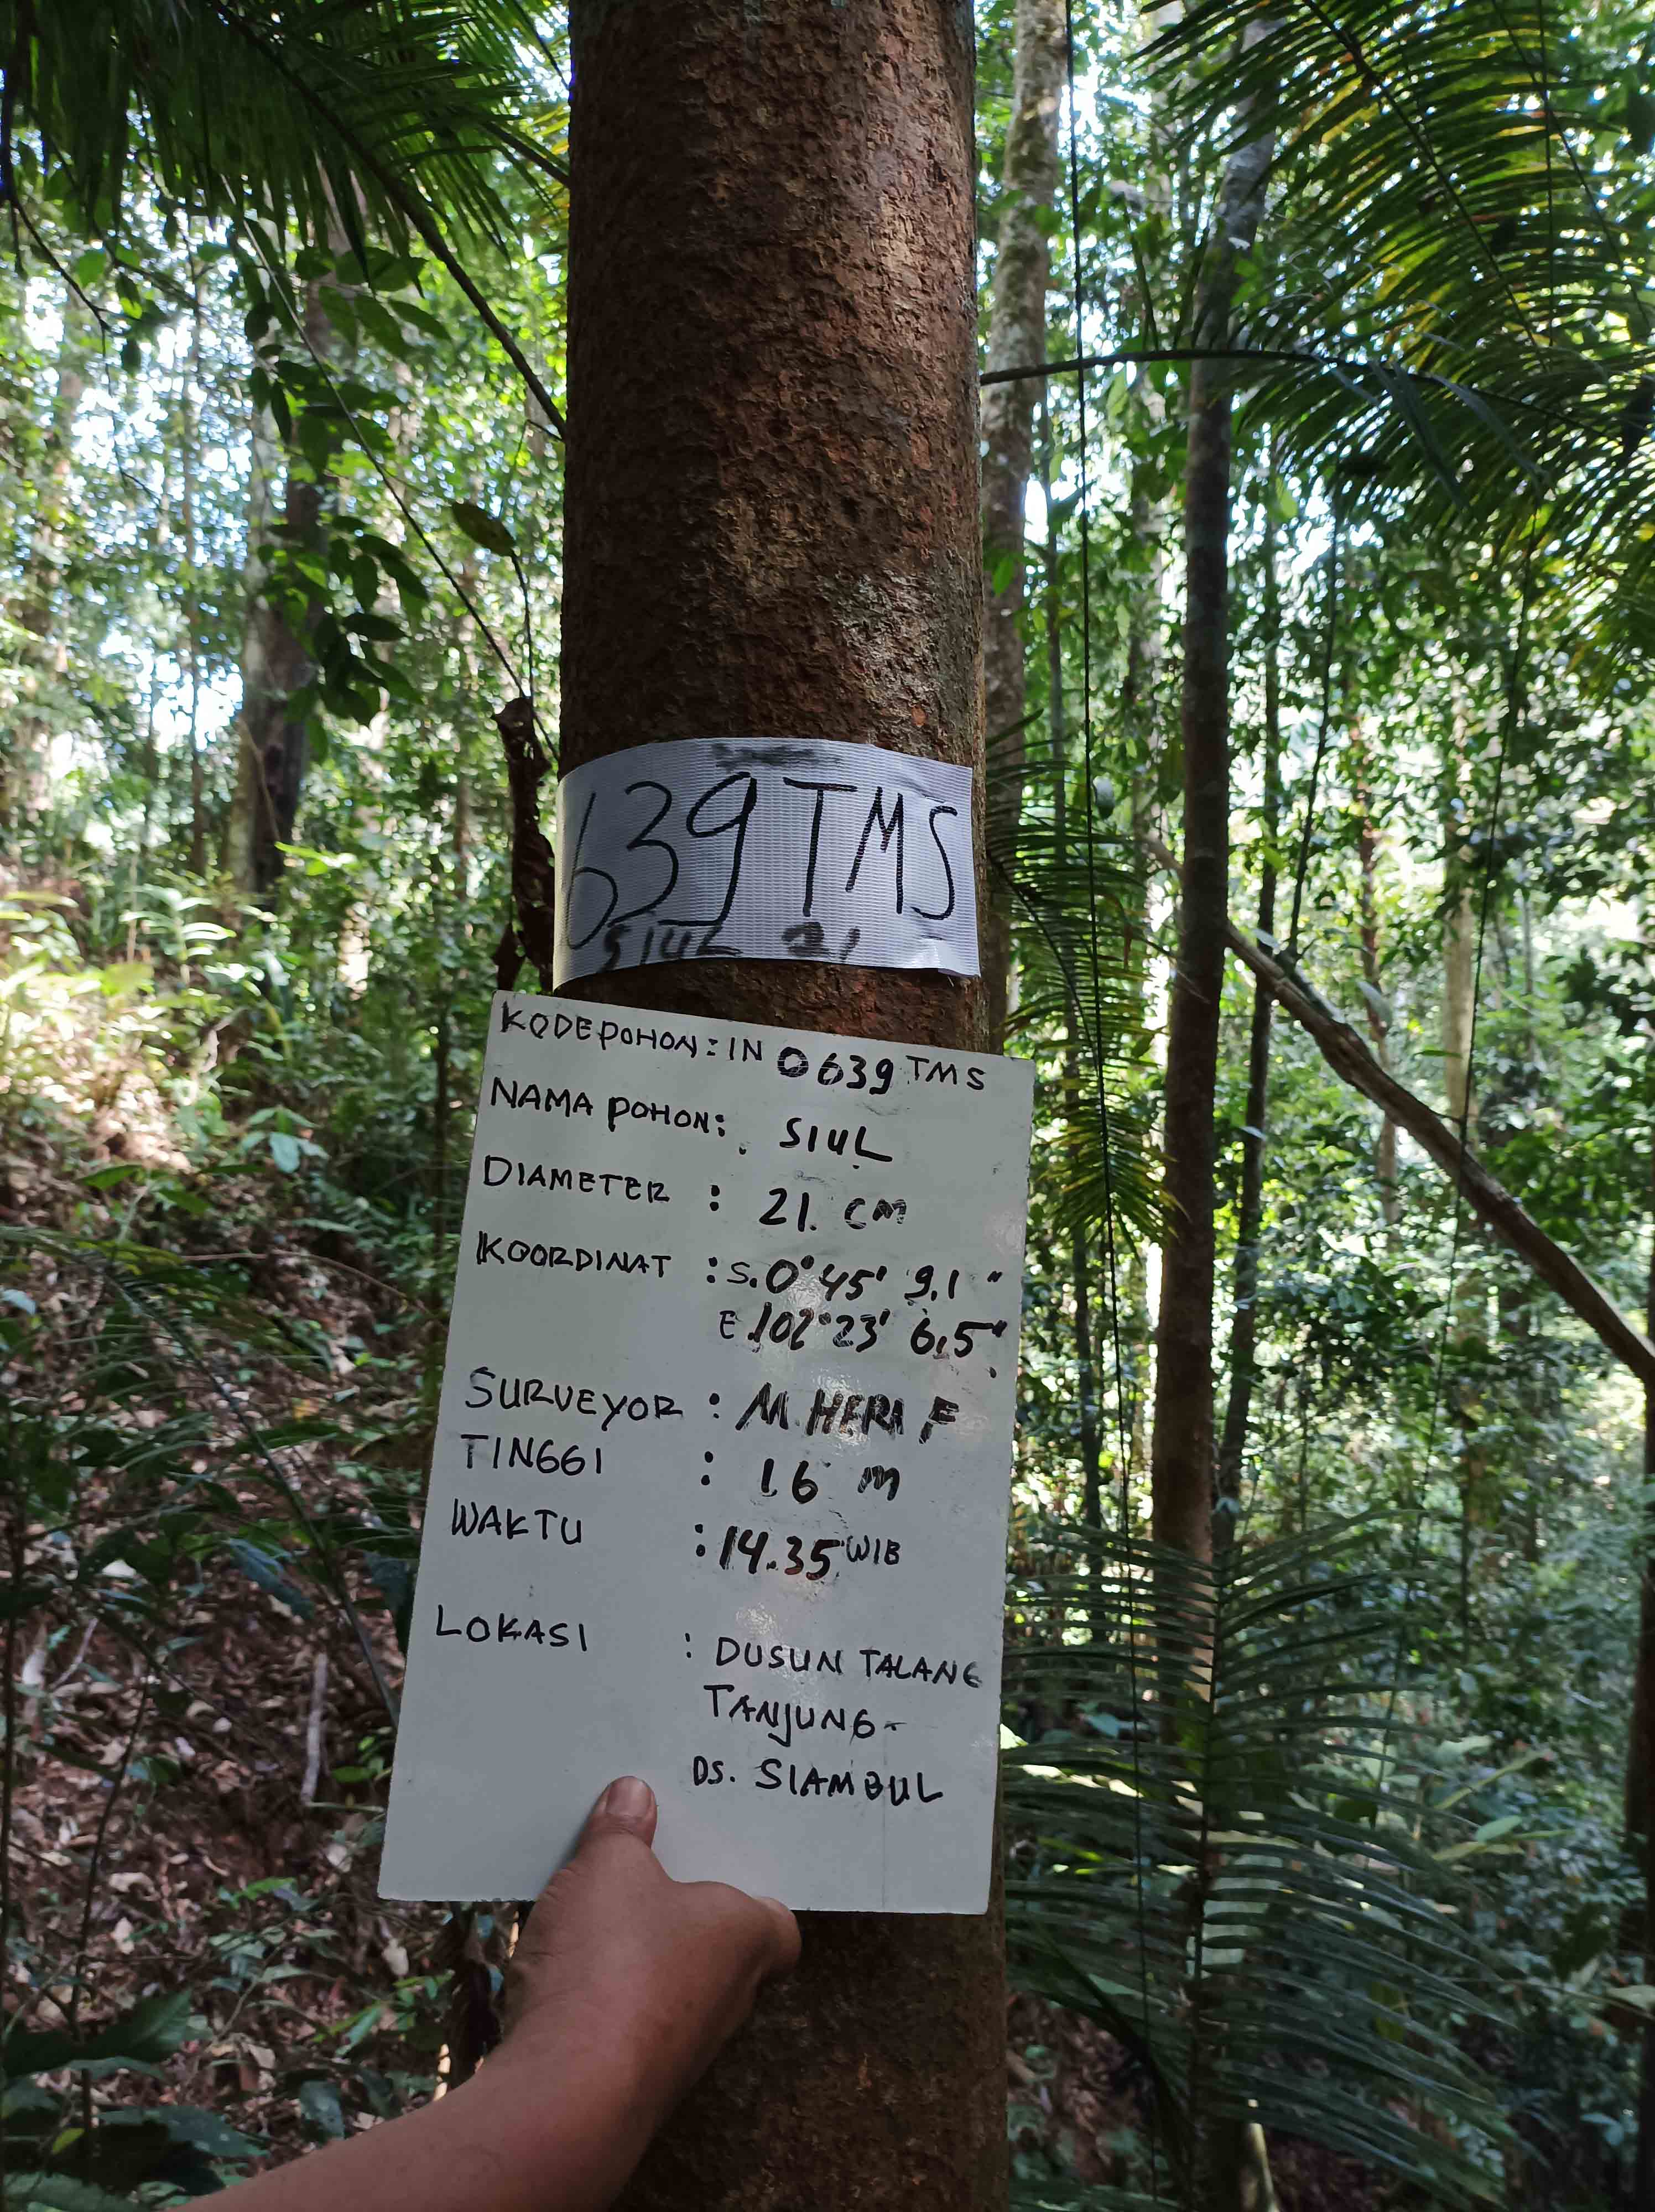 639 TMS
SIUL 21
KODE POHON: IN 0639 TMS
NAMA POHON: SIUL
DIAMETER : 21 CM
KOORDINAT : S. 0° 45' 9,1"
E. 102° 23' 6,5"
SURVEYOR : M. HERI F
TINGGI : 16 m
WAKTU : 14.35 WIB
LOKASI : DUSUN TALANG
TANJUNG-
DS. SIAMBUL